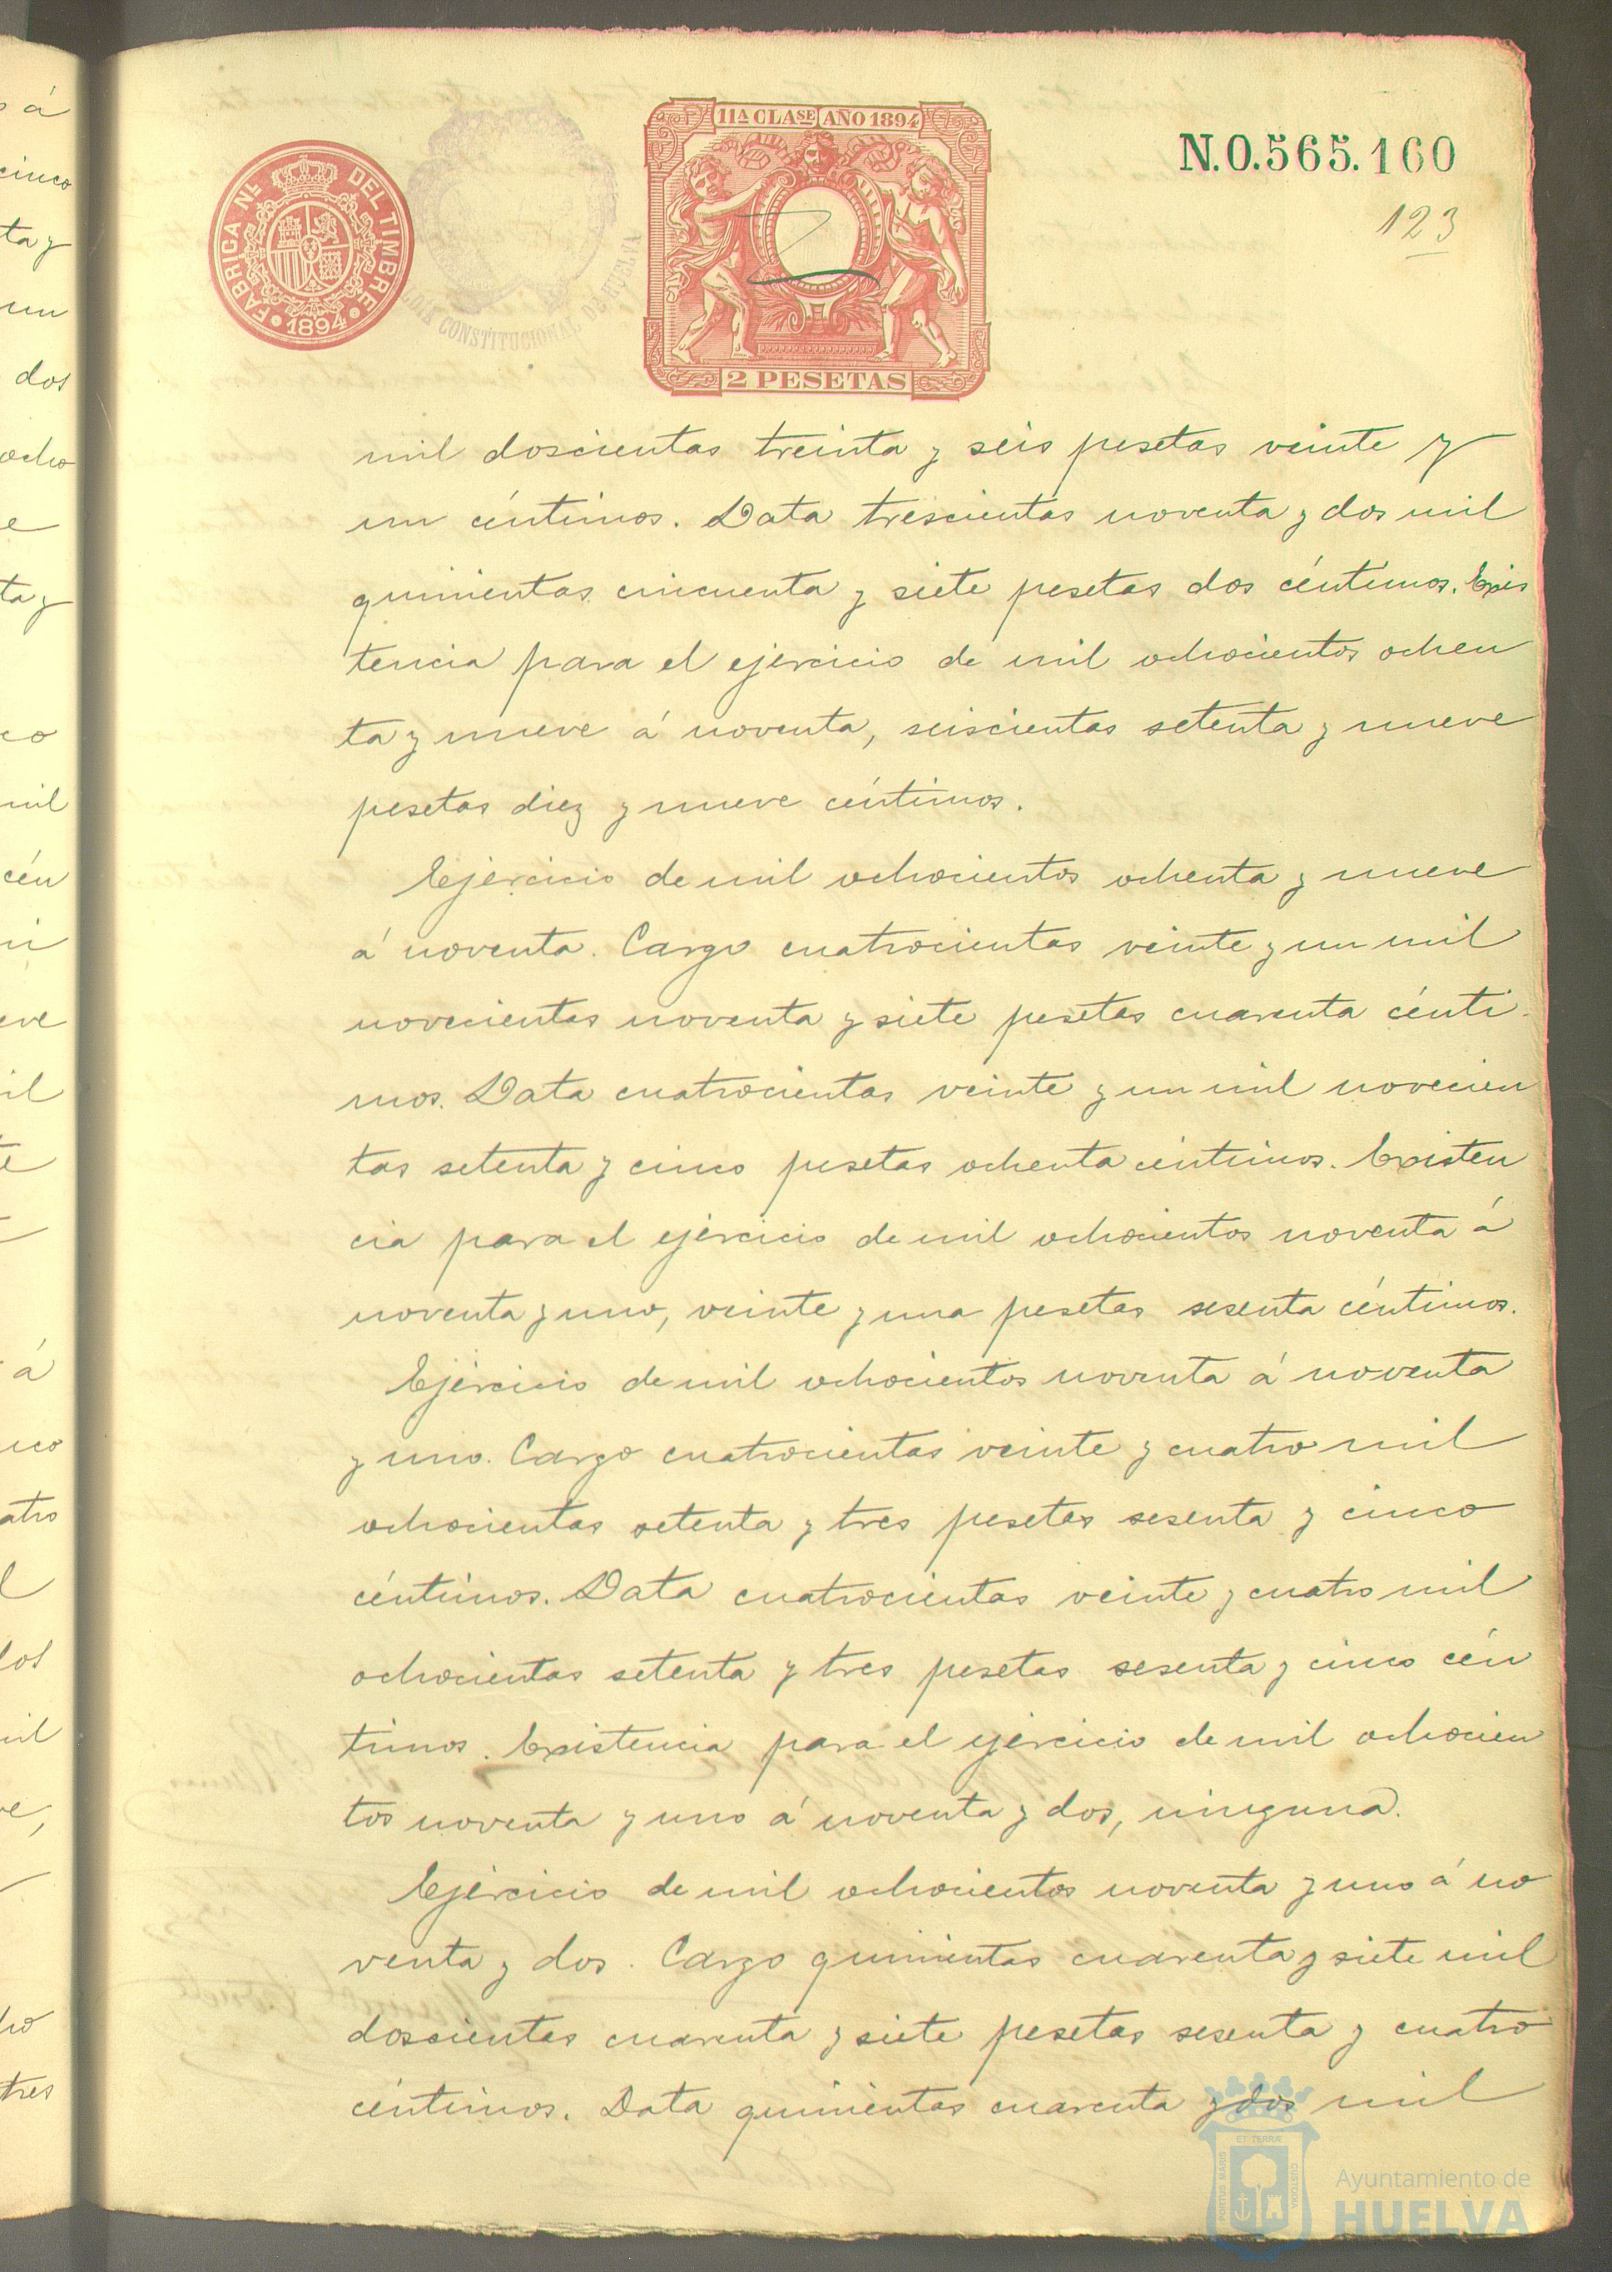 11ª CLASE AÑO 1894
N.0.565.160
123
FABRICA NL. DEL TIMBRE
1894
CONSTITUCIONAL DE HUELVA
2 PESETAS
mil doscientas treinta y seis pesetas veinte y
un céntimos. Data trescientas noventa y dos mil
quinientas cincuenta y siete pesetas dos céntimos. Exis
tencia para el ejercicio de mil ochocientos ochen
ta y nueve á noventa, seiscientas setenta y nueve
pesetas diez y nueve céntimos.
Ejercicio de mil ochocientos ochenta y nueve
á noventa. Cargo cuatrocientas veinte y un mil
novecientas noventa y siete pesetas cuarenta cénti-
mos. Data cuatrocientas veinte y un mil novecien
tas setenta y cinco pesetas ochenta céntimos. Existen
cia para el ejercicio de mil ochocientos noventa á
noventa y uno, veinte y una pesetas sesenta céntimos.
Ejercicio de mil ochocientos noventa á noventa
y uno. Cargo cuatrocientas veinte y cuatro mil
ochocientas setenta y tres pesetas sesenta y cinco
céntimos. Data cuatrocientas veinte y cuatro mil
ochocientas setenta y tres pesetas sesenta y cinco cén
timos. Existencia para el ejercicio de mil ochocien
tos noventa y uno á noventa y dos, ninguna.
Ejercicio de mil ochocientos noventa y uno á no
venta y dos. Cargo quinientas cuarenta y siete mil
doscientas cuarenta y siete pesetas sesenta y cuatro
céntimos. Data quinientas cuarenta y dos mil
á
cinco
ta y
un
dos
ocho
e
ta y
co
mil
cén
ni
eve
il
te
á
nco
atro
l
los
mil
ve,
ho
tres
PORTUS MARIS ET TERRÆ CUSTODIA
Ayuntamiento de
HUELVA